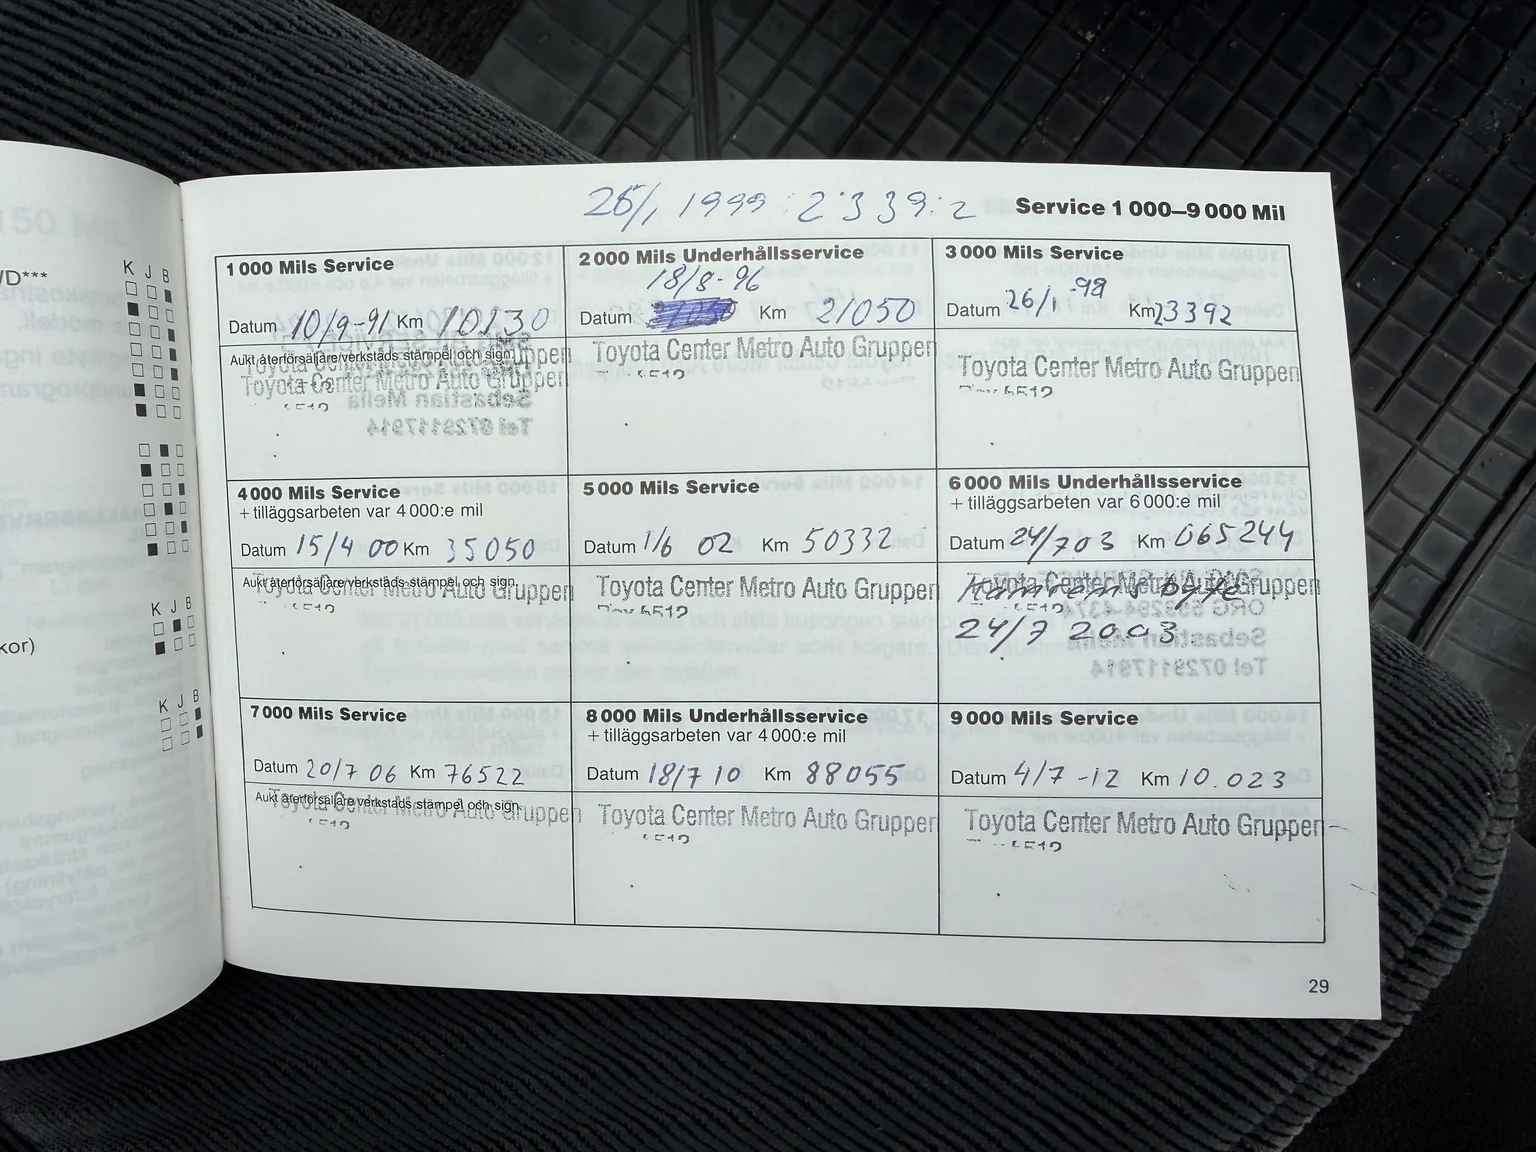 150 MIL
VD***
K J B
K J B
kor)
K J B
25/1 1999 : 2339:2
Service 1 000–9 000 Mil
1 000 Mils Service
Datum 10/9-91 Km 10130
Aukt återförsäljare/verkstads stämpel och sign.
Toyota Center Metro Auto Gruppen
2 000 Mils Underhållsservice
18/8-96
Datum Km 21050
Toyota Center Metro Auto Gruppen
3 000 Mils Service
Datum 26/1 -99 Km 23392
Toyota Center Metro Auto Gruppen
4 000 Mils Service
+ tilläggsarbeten var 4 000:e mil
Datum 15/4 00 Km 35050
Aukt återförsäljare/verkstads stämpel och sign.
Toyota Center Metro Auto Gruppen
5 000 Mils Service
Datum 1/6 02 Km 50332
Toyota Center Metro Auto Gruppen
6 000 Mils Underhållsservice
+ tilläggsarbeten var 6 000:e mil
Datum 24/703 Km 065244
Toyota Center Metro Auto Gruppen
24/7 2003
7 000 Mils Service
Datum 20/7 06 Km 76522
Aukt återförsäljare/verkstads stämpel och sign.
Toyota Center Metro Auto Gruppen
8 000 Mils Underhållsservice
+ tilläggsarbeten var 4 000:e mil
Datum 18/7 10 Km 88055
Toyota Center Metro Auto Gruppen
9 000 Mils Service
Datum 4/7 -12 Km 10.023
Toyota Center Metro Auto Gruppen
29